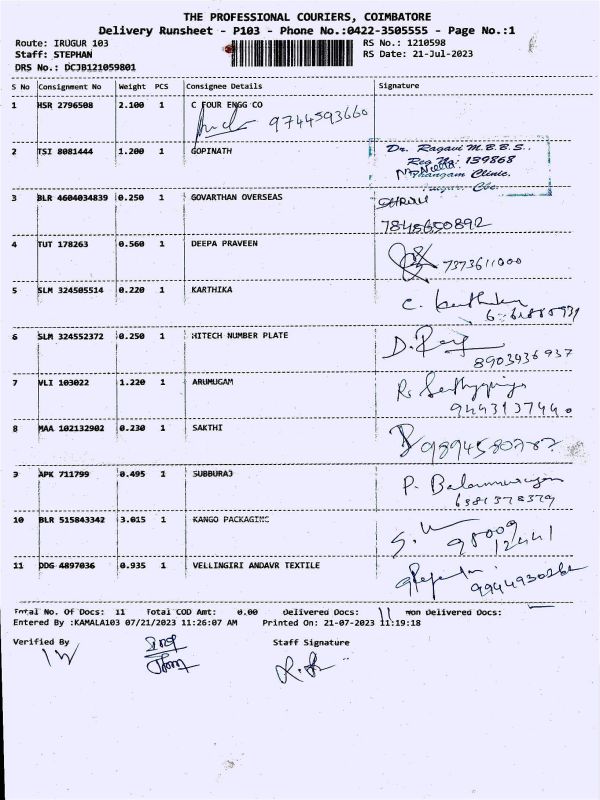 THE PROFESSIONAL COURIERS, COIMBATORE
Delivery Runsheet - P103 - Phone No.:0422-3505555 - Page No.:1
Route: IRUGUR 103 RS No.: 1210598
Staff: STEPHAN RS Date: 21-Jul-2023
DRS No.: DCJB121059801
S No Consignment No Weight PCS Consignee Details Signature
1 HSR 2796508 2.100 1 C FOUR ENGG CO
9744593660
2 TSI 8081444 1.200 1 GOPINATH
Dr. Ragavi M.B.B.S.,
Reg No: 139868
Clinic.
3 BLR 4604034839 0.250 1 GOVARTHAN OVERSEAS
7845650892
4 TUT 178263 0.560 1 DEEPA PRAVEEN
7373611000
5 SLM 324505514 0.220 1 KARTHIKA
6 SLM 324552372 0.250 1 HITECH NUMBER PLATE
8903936937
7 VLI 103022 1.220 1 ARUMUGAM
9443137440
8 MAA 102132902 0.230 1 SAKTHI
9 APK 711799 0.495 1 SUBBURAJ
P. Balamurugan
6381378379
10 BLR 515843342 3.015 1 KANGO PACKAGING
98009
12441
11 DDG 4897036 0.935 1 VELLINGIRI ANDAVR TEXTILE
Total No. Of Docs: 11 Total COD Amt: 0.00 Delivered Docs: 11 Non Delivered Docs:
Entered By :KAMALA103 07/21/2023 11:26:07 AM Printed On: 21-07-2023 11:19:18
Verified By Staff Signature